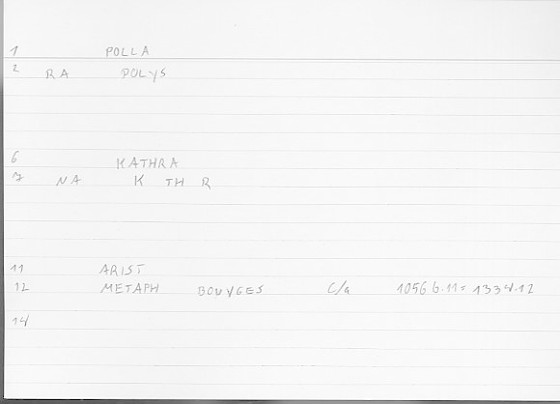 1 POLLA
2 RA POLYS
6 KATHRA
7 NA K TH R
11 ARIST
12 METAPH BOUYGES C/a 1056.6.11= 1334.12
14